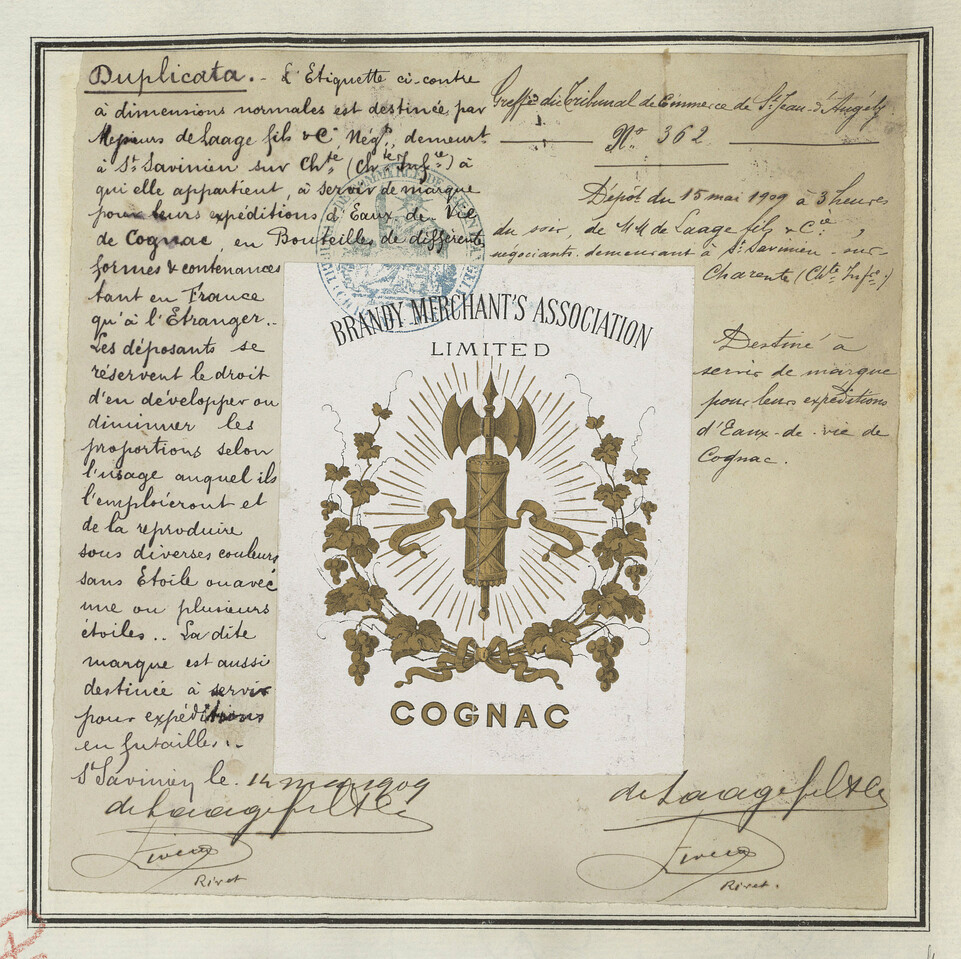 Duplicata. - L'Etiquette ci-contre
à dimensions normales est destinée par
Messieurs de Laage fils & Cie Négts, demeurt
à St Savinien sur Chte (Chte Infre) à
qui elle appartient, à servir de marque
pour leurs expéditions d'Eaux-de-Vie
de Cognac, en Bouteilles de différentes
formes & contenances
tant en France
qu'à l'Etranger..
Les déposants se
réservent le droit
d'en développer ou
diminuer les
proportions selon
l'usage auquel ils
l'emploieront et
de la reproduire
sous diverses couleurs
sans Etoile ou avec
une ou plusieurs
étoiles.. La dite
marque est aussi
destinée à servir
pour expéditions
en futailles..
St Savinien le 14 mai 1909
de Laage fils & Cie
Rivet
Greffe du Tribunal de Commerce de St Jean-d'Angély
No 362
Dépôt du 15 mai 1909 à 3 heures
du soir, de MM de Laage fils & Cie,
négociants demeurant à St Savinien-sur-
Charente (Chte Infre)
Destiné à
servir de marque
pour leurs expéditions
d'Eaux-de-vie de
Cognac.
BRANDY MERCHANT'S ASSOCIATION
LIMITED
COGNAC
de Laage fils & Cie
Rivet.